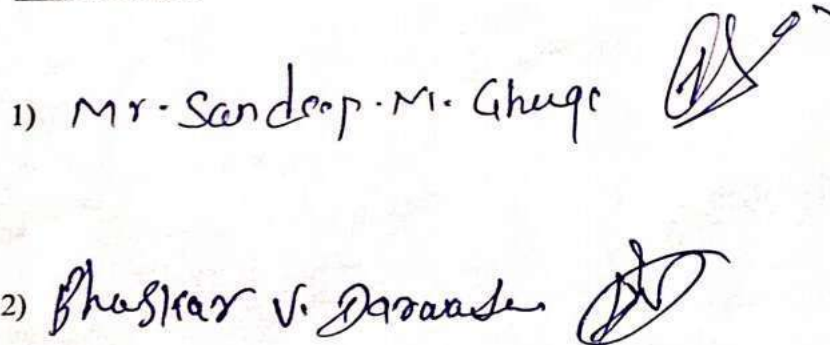 1) Mr. Sandeep. M. Ghuge
2) Bhaskar V.